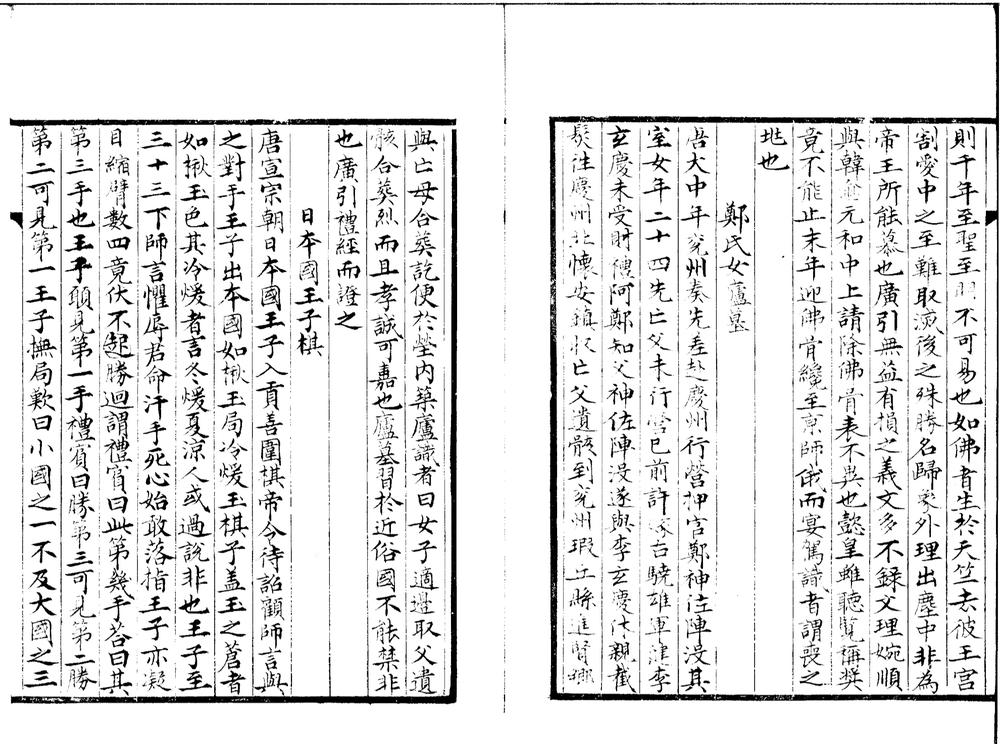 則千年至聖至明不可易也如佛者生於天竺去彼王宮
割愛中之至難取滅後之殊勝名歸象外理出塵中非為
帝王所能慕也廣引無益有損之義文多不錄文理婉順
與韓愈元和中上請除佛骨表不異也懿皇雖聽覽稱獎
竟不能止末年迎佛骨纔至京師俄而宴駕識者謂喪之
兆也
鄭氏女廬墓
唐大中年兖州奏先差赴慶州行營押官鄭神佐陣没其
室女年二十四先亡父未行營已前許嫁右驍雄軍健李
玄慶未受財禮阿鄭知父神佐陣没遂與李玄慶休親截
髮往慶州北懷安鎮收亡父遺骸到兖州瑕丘縣進賢鄉
與亡母合葬訖便於塋内築廬識者曰女子適邊取父遺
骸合葬烈而且孝誠可嘉也廬墓習於近俗國不能禁非
也廣引禮經而證之
日本國王子棋
唐宣宗朝日本國王子入貢善圍棋帝令待詔顧師言與
之對手王子出本國如揪玉局冷煖玉棋子盖玉之蒼者
如揪玉色其冷煖者言冬煖夏涼人或過說非也王子至
三十三下師言懼辱君命汗手死心始敢落指王子亦凝
目縮臂數四竟伏不起勝迴謂禮賓曰此第幾手荅曰其
第三手也王子願見第一手禮賓曰勝第三可見第二勝
第二可見第一王子撫局歎曰小國之一不及大國之三